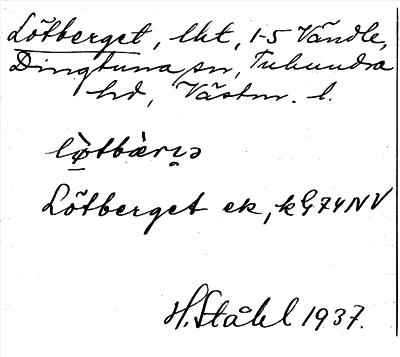 Lötberget, lht, 1-5 Vändle,
Dingtuna sn, Tuhundra
hd, Västm. l.
Lötberget ek, k G74NV
H. Ståhl 1937.